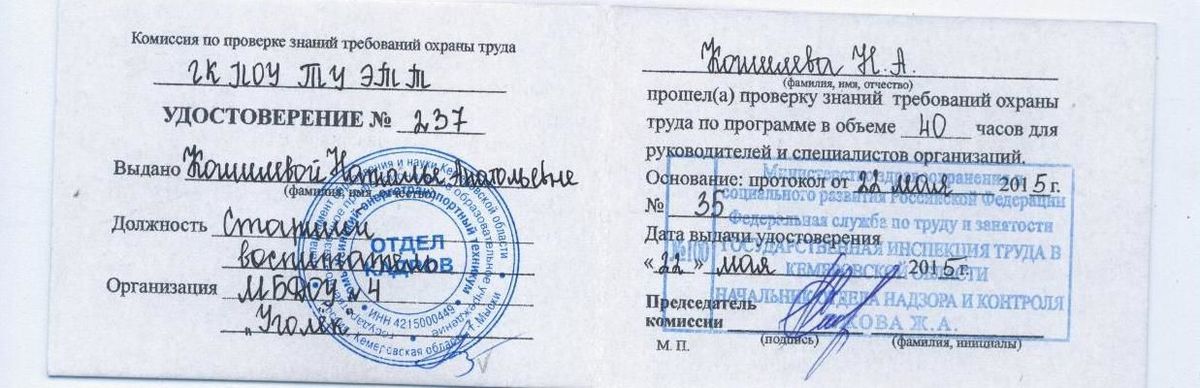 Комиссия по проверке знаний требований охраны труда
ГК ПОУ ТУ ЭТТ
УДОСТОВЕРЕНИЕ № 237
Выдано Кошелевой Наталье Анатольевне
(фамилия, имя, отчество)
Должность Старший
воспитатель
Организация МБДОУ №4
"Уголек"
ОТДЕЛ
КАДРОВ
ИНН 4215000449
Кемеровская область г. Мыски
Кошелева Н.А.
(фамилия, имя, отчество)
прошел(а) проверку знаний требований охраны
труда по программе в объеме 40 часов для
руководителей и специалистов организаций.
Основание: протокол от 22 мая 2015г.
№ 35
Дата выдачи удостоверения
«22» мая 2015г.
Председатель
комиссии
(подпись) (фамилия, инициалы)
М. П.
Министерство здравоохранения и
социального развития Российской Федерации
Федеральная служба по труду и занятости
ГОСУДАРСТВЕННАЯ ИНСПЕКЦИЯ ТРУДА В
КЕМЕРОВСКОЙ ОБЛАСТИ
НАЧАЛЬНИК ОТДЕЛА НАДЗОРА И КОНТРОЛЯ
Ж.А.